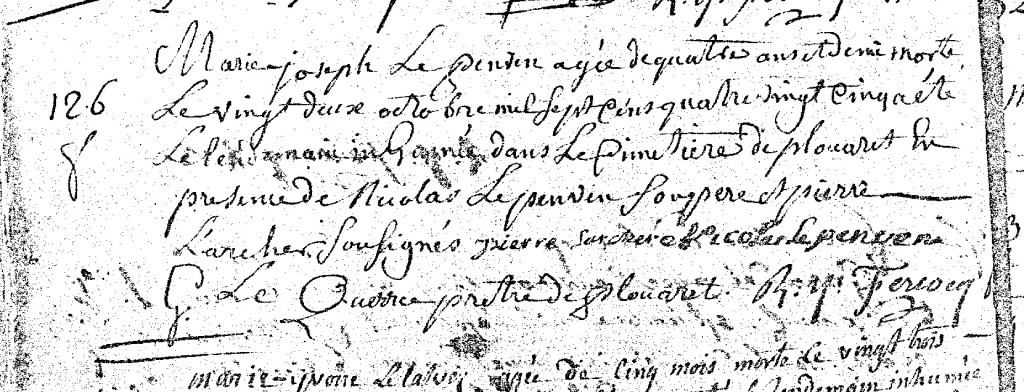 Marie joseph Le penven agée de quatre ans et demi morte
126 Le vingt deux octobre mil sept cens quatre vingt cinq a été
f Le lendemain inhumée dans Le Cimetiere de plouaret En
presence de Nicolas Le penven son pere et pierre
Larcher soussignés pierre Larcher Nicolas le penven
G. Le Querre prêtre de plouaret R. y. Fercocq
marie yvonne agée de cinq mois morte le vingt trois
le lendemain inhumée